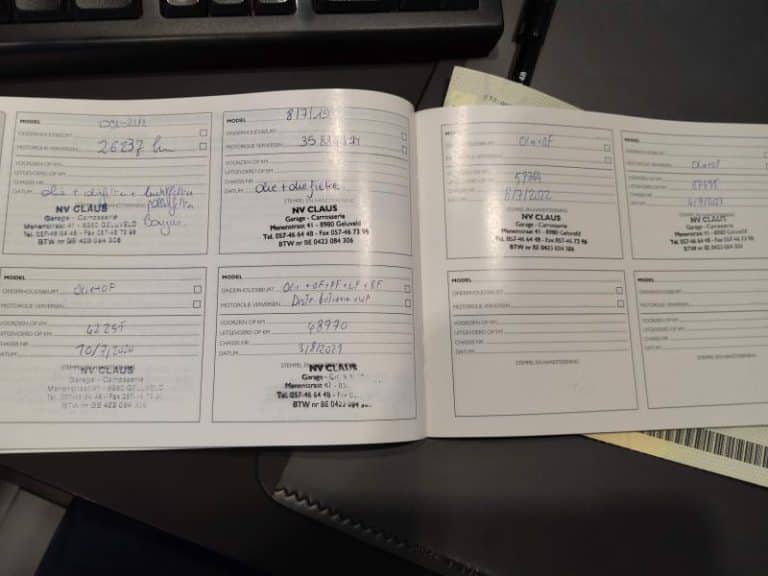 MODEL
ONDERHOUDSBEURT
MOTOROLIE VERVERSEN 26237 km
VOORZIEN OP KM
UITGEVOERD OP KM
CHASSIS NR
DATUM olie + oliefilter + luchtfilter
pollenfilter
bougies
NV CLAUS
Garage - Carrosserie
Menenstraat 41 - 8980 GELUVELD
Tel. 057-46 64 48 - Fax 057-46 73 96
BTW nr BE 0423 084 306
MODEL 8/7/19
ONDERHOUDSBEURT
MOTOROLIE VERVERSEN
VOORZIEN OP KM
UITGEVOERD OP KM
CHASSIS NR
DATUM olie + oliefilter
STEMPEL EN HANDTEKENING
NV CLAUS
Garage - Carrosserie
Menenstraat 41 - 8980 Geluveld
Tel. 057-46 64 48 - Fax 057-46 73 96
BTW nr BE 0423 084 306
MODEL
ONDERHOUDSBEURT Olie+OF
MOTOROLIE VERVERSEN
VOORZIEN OP KM
UITGEVOERD OP KM
CHASSIS NR
DATUM 8/7/2022
STEMPEL EN HANDTEKENING
NV CLAUS
Garage - Carrosserie
Menenstraat 41 - 8980 Geluveld
Tel. 057-46 64 48 - Fax 057-46 73 96
BTW nr BE 0423 084 306
MODEL
ONDERHOUDSBEURT
MOTOROLIE VERVERSEN Olie+OF
VOORZIEN OP KM
UITGEVOERD OP KM
CHASSIS NR
DATUM
STEMPEL EN HANDTEKENING
NV CLAUS
Garage - Carrosserie
MODEL
ONDERHOUDSBEURT Olie+OF
MOTOROLIE VERVERSEN
VOORZIEN OP KM
UITGEVOERD OP KM
CHASSIS NR
DATUM 10/7/2020
STEMPEL EN HANDTEKENING
NV CLAUS
Garage - Carrosserie
Menenstraat 41 - 8980 GELUVELD
Tel. 057-46 64 48 - Fax 057-46 73 96
BTW nr BE 0423 084 306
MODEL
ONDERHOUDSBEURT Olie + OF + PF + LF + BF
MOTOROLIE VERVERSEN Distr. + WP
VOORZIEN OP KM
UITGEVOERD OP KM 48970
CHASSIS NR
DATUM 3/8/2021
STEMPEL
NV CLAUS
Garage
Menenstraat 41
Tel. 057-46 64 48
BTW nr BE 0423 084
MODEL
ONDERHOUDSBEURT
MOTOROLIE VERVERSEN
VOORZIEN OP KM
UITGEVOERD OP KM
CHASSIS NR
DATUM
STEMPEL EN HANDTEKENING
MODEL
ONDERHOUDSBEURT
MOTOROLIE VERVERSEN
VOORZIEN OP KM
UITGEVOERD OP KM
CHASSIS NR
DATUM
STEMPEL EN HANDTEKENING